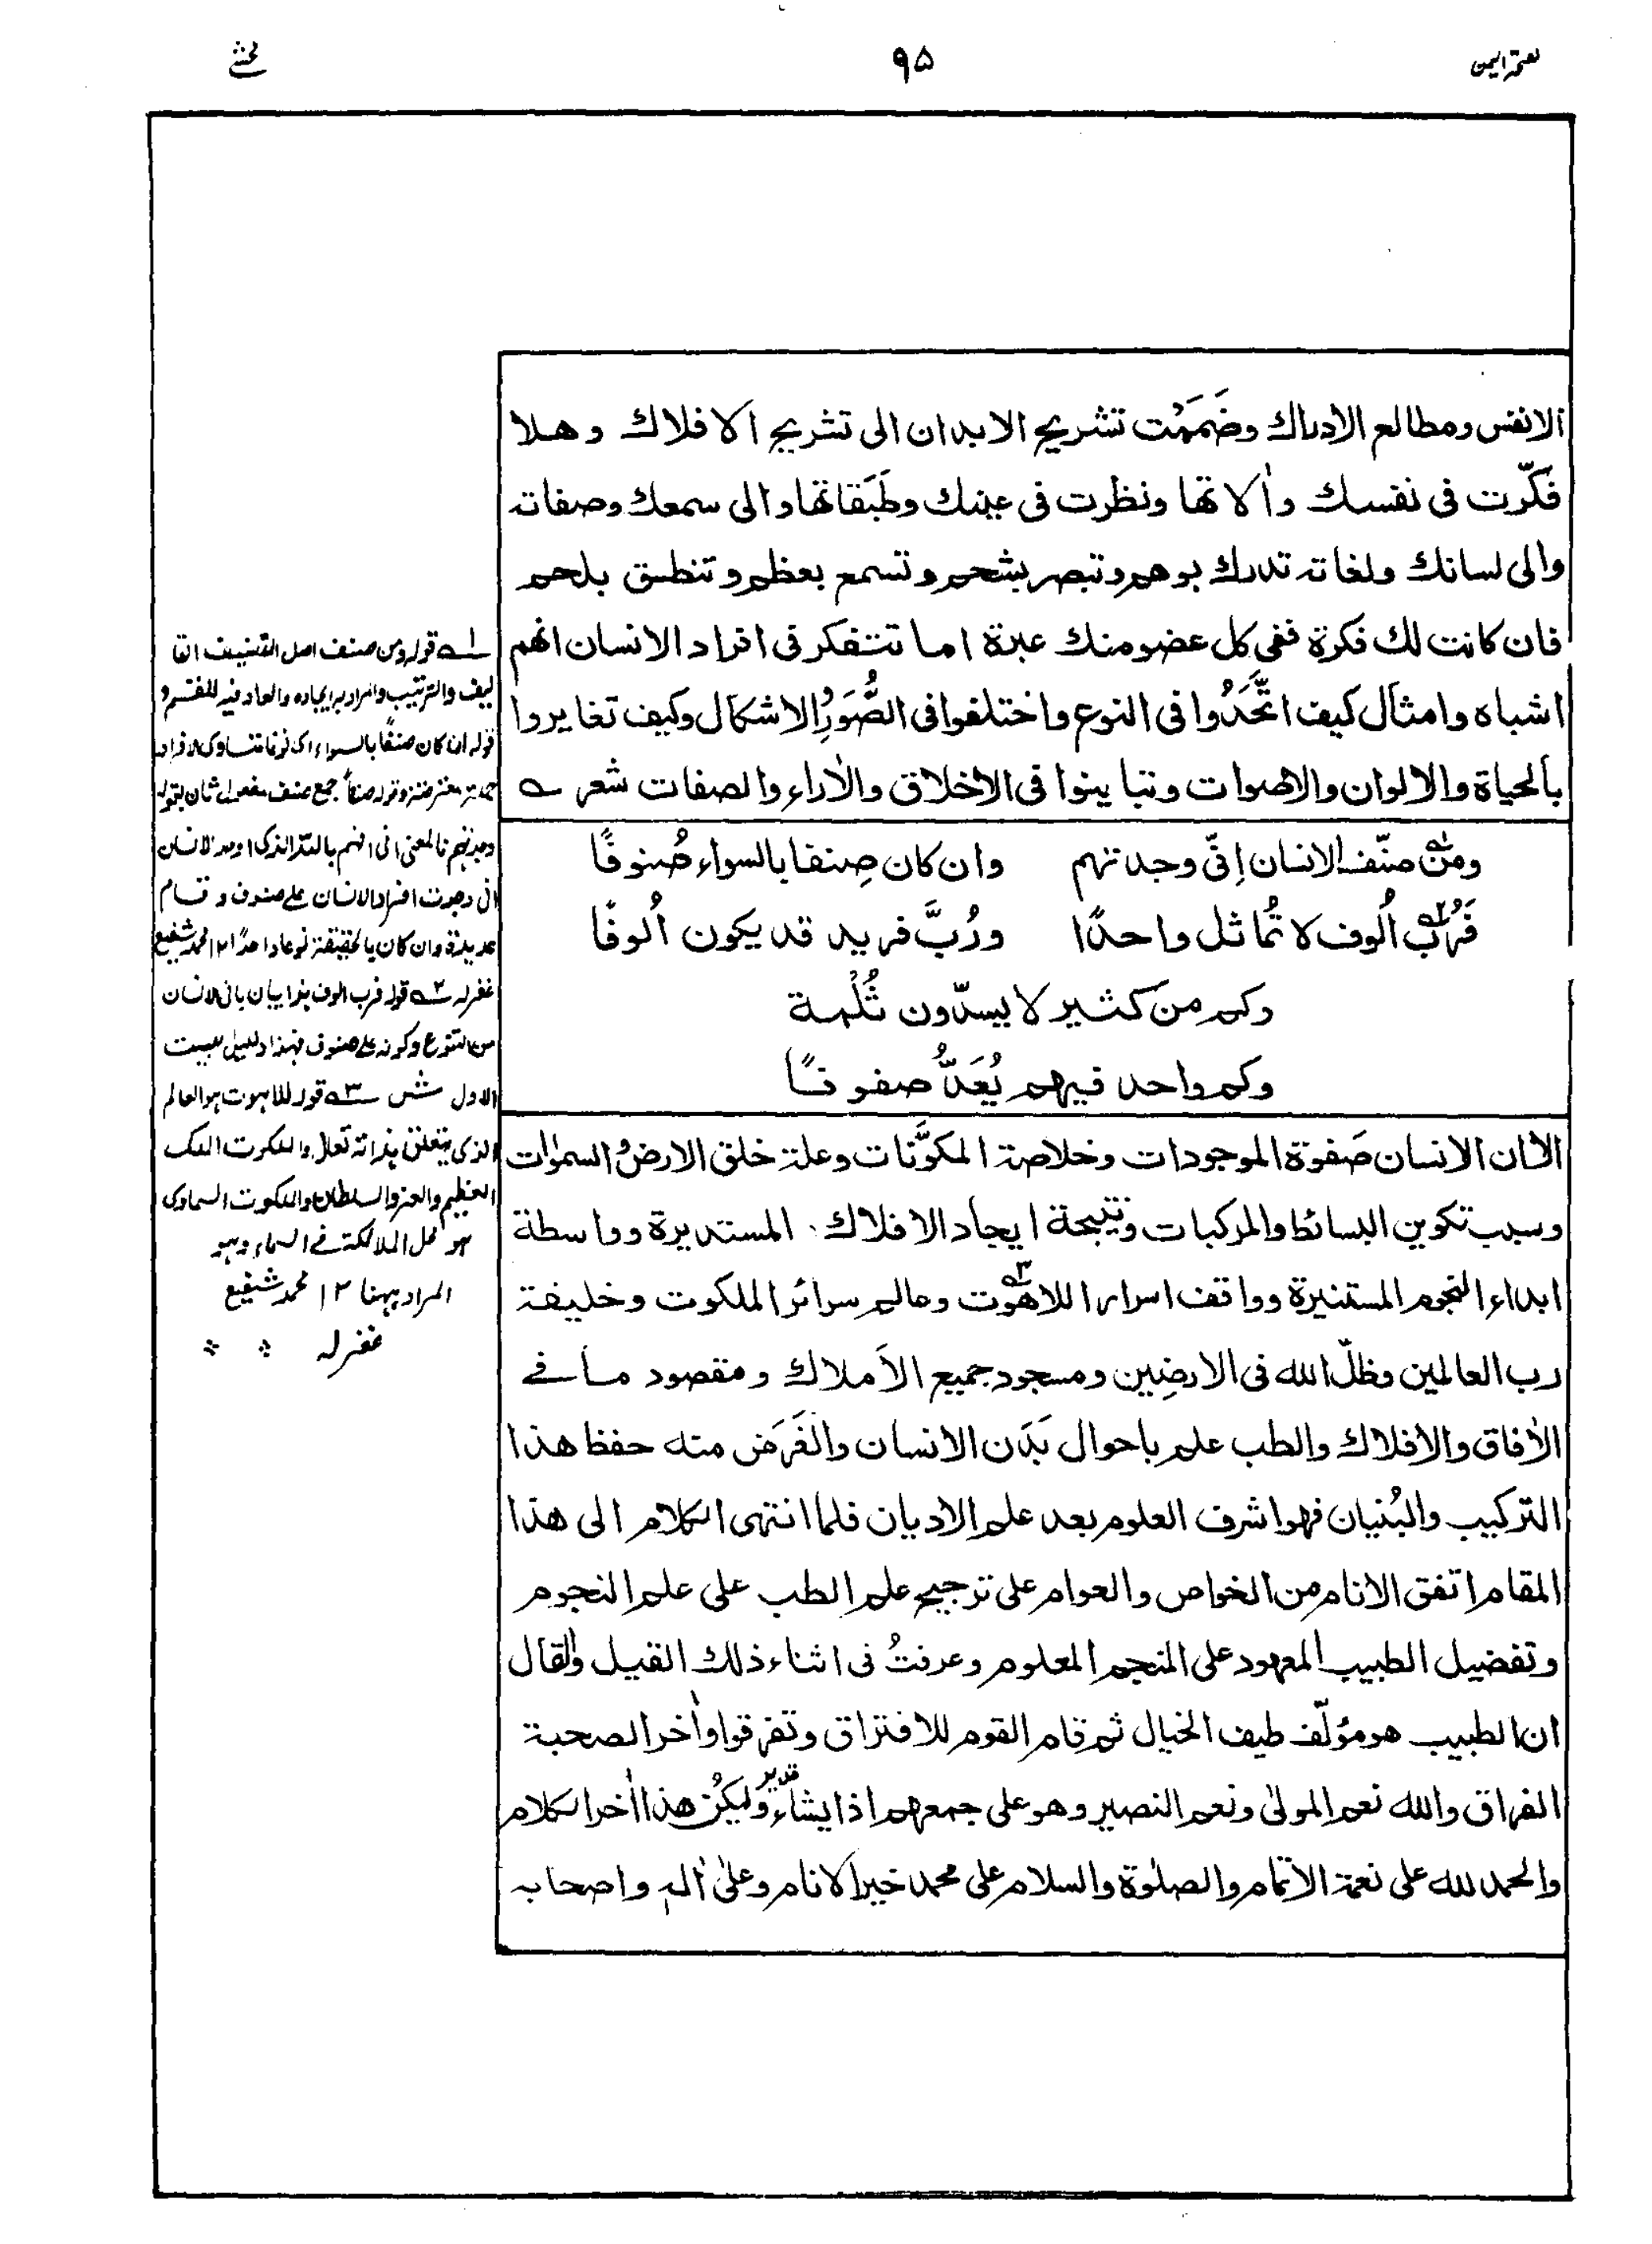 نفحة اليمن
٩۵
محشے
الانفس ومطالع الادراك وضَمَمْتَ تشريح الابدان الى تشريح الافلاك وهلا
فكّرت فى نفسك واٰلاتها ونظرت فى عينك وطَبَقاتها والى سمعك وصفاته
والى لسانك ولغاته تدرك بوهم وتبصر بشحم وتسمع بعظم وتنطق بلحم
فان كانت لك فكرة ففى كل عضو منك عبرة اما تتفكر فى افراد الانسان انهم
اشباه وامثال كيف اتَّحَدُوا فى النوع واختلفوا فى الصُّوَرِ والاشكال وكيف تغايروا
بالحياة والالوان والاصوات وتباينوا فى الاخلاق والاٰراء والصفات شعر
ومن صنّف الانسان اِنّى وجدتهم وان كان صِنفا بالسواء صُنوفًا
فَرُبَّ اُلوف لا تُماثل واحدًا ورُبَّ فريد قد يكون اُلوفًا
وكم من كثير لا يسدّون ثُلْمة
وكم واحد فيهم يُعَدُّ صفوفًا
الا ان الانسان صَفوة الموجودات وخلاصة المكوَّنات وعلة خلق الارض والسمٰوات
وسبب تكوين البسائط والمركبات ونتيجة ايجاد الافلاك المستديرة وواسطة
ابداء النجوم المستنيرة وواقف اسرار اللاهوت وعالم سرائر الملكوت وخليفة
رب العالمين وظلّ الله فى الارضِين ومسجود جميع الاَملاك ومقصود ما فے
الاٰفاق والافلاك والطب علم باحوال بَدَن الانسان والغَرَض منه حفظ هذا
التركيب والبُنيان فهو اشرف العلوم بعد علم الاديان فلما انتهى الكلام الى هذا
المقام اتفق الانام من الخواص والعوام على ترجيح علم الطب على علم النجوم
وتفضيل الطبيب المعهود على المنجم المعلوم وعرفتُ فى اثناء ذلك القيل والقال
ان الطبيب هو مؤلّف طيف الخيال ثم قام القوم للافتراق وتفرقوا واٰخر الصحبة
الفراق والله نعم المولىٰ ونعم النصير وهو على جمعهم اذا يشاء قدير وليكن هذا اٰخر الكلام
والحمد لله على نعمة الاتمام والصلوٰة والسلام على محمد خير الانام وعلىٰ اٰله واصحابه
١ قوله ومن صنف اصل التصنيف التا
ليف والترتيب والمراد به ايجاده والواو فيه للقسم و
قوله ان كان صنفًا بالسواء اى نوعا متساوى الافراد
جملة معترضة وقوله صنوفًا جمع صنف مفعول ثان لقوله
وجدتهم فالمعنى انى اقسم بالله الذى اوجد الانسان
انى وجدت افراد الانسان على صنوف واقسام
عديدة وان كان بالحقيقة نوعا واحدًا ١٢ محمد شفيع
غفر له ٢ قوله فرب الوف هذا بيان بان الانسان
من التنوع وكونه على صنوف فهذا دليل لبيت
الاول ٣ قوله اللاهوت هو العالم
الذى يتعلق بذاته تعالى والملكوت الملك
العظيم والعز والسلطان والملكوت السماوى
هو محل الملائكة فے السماء وهو
المراد ههنا ١٢ محمد شفيع
غفر له